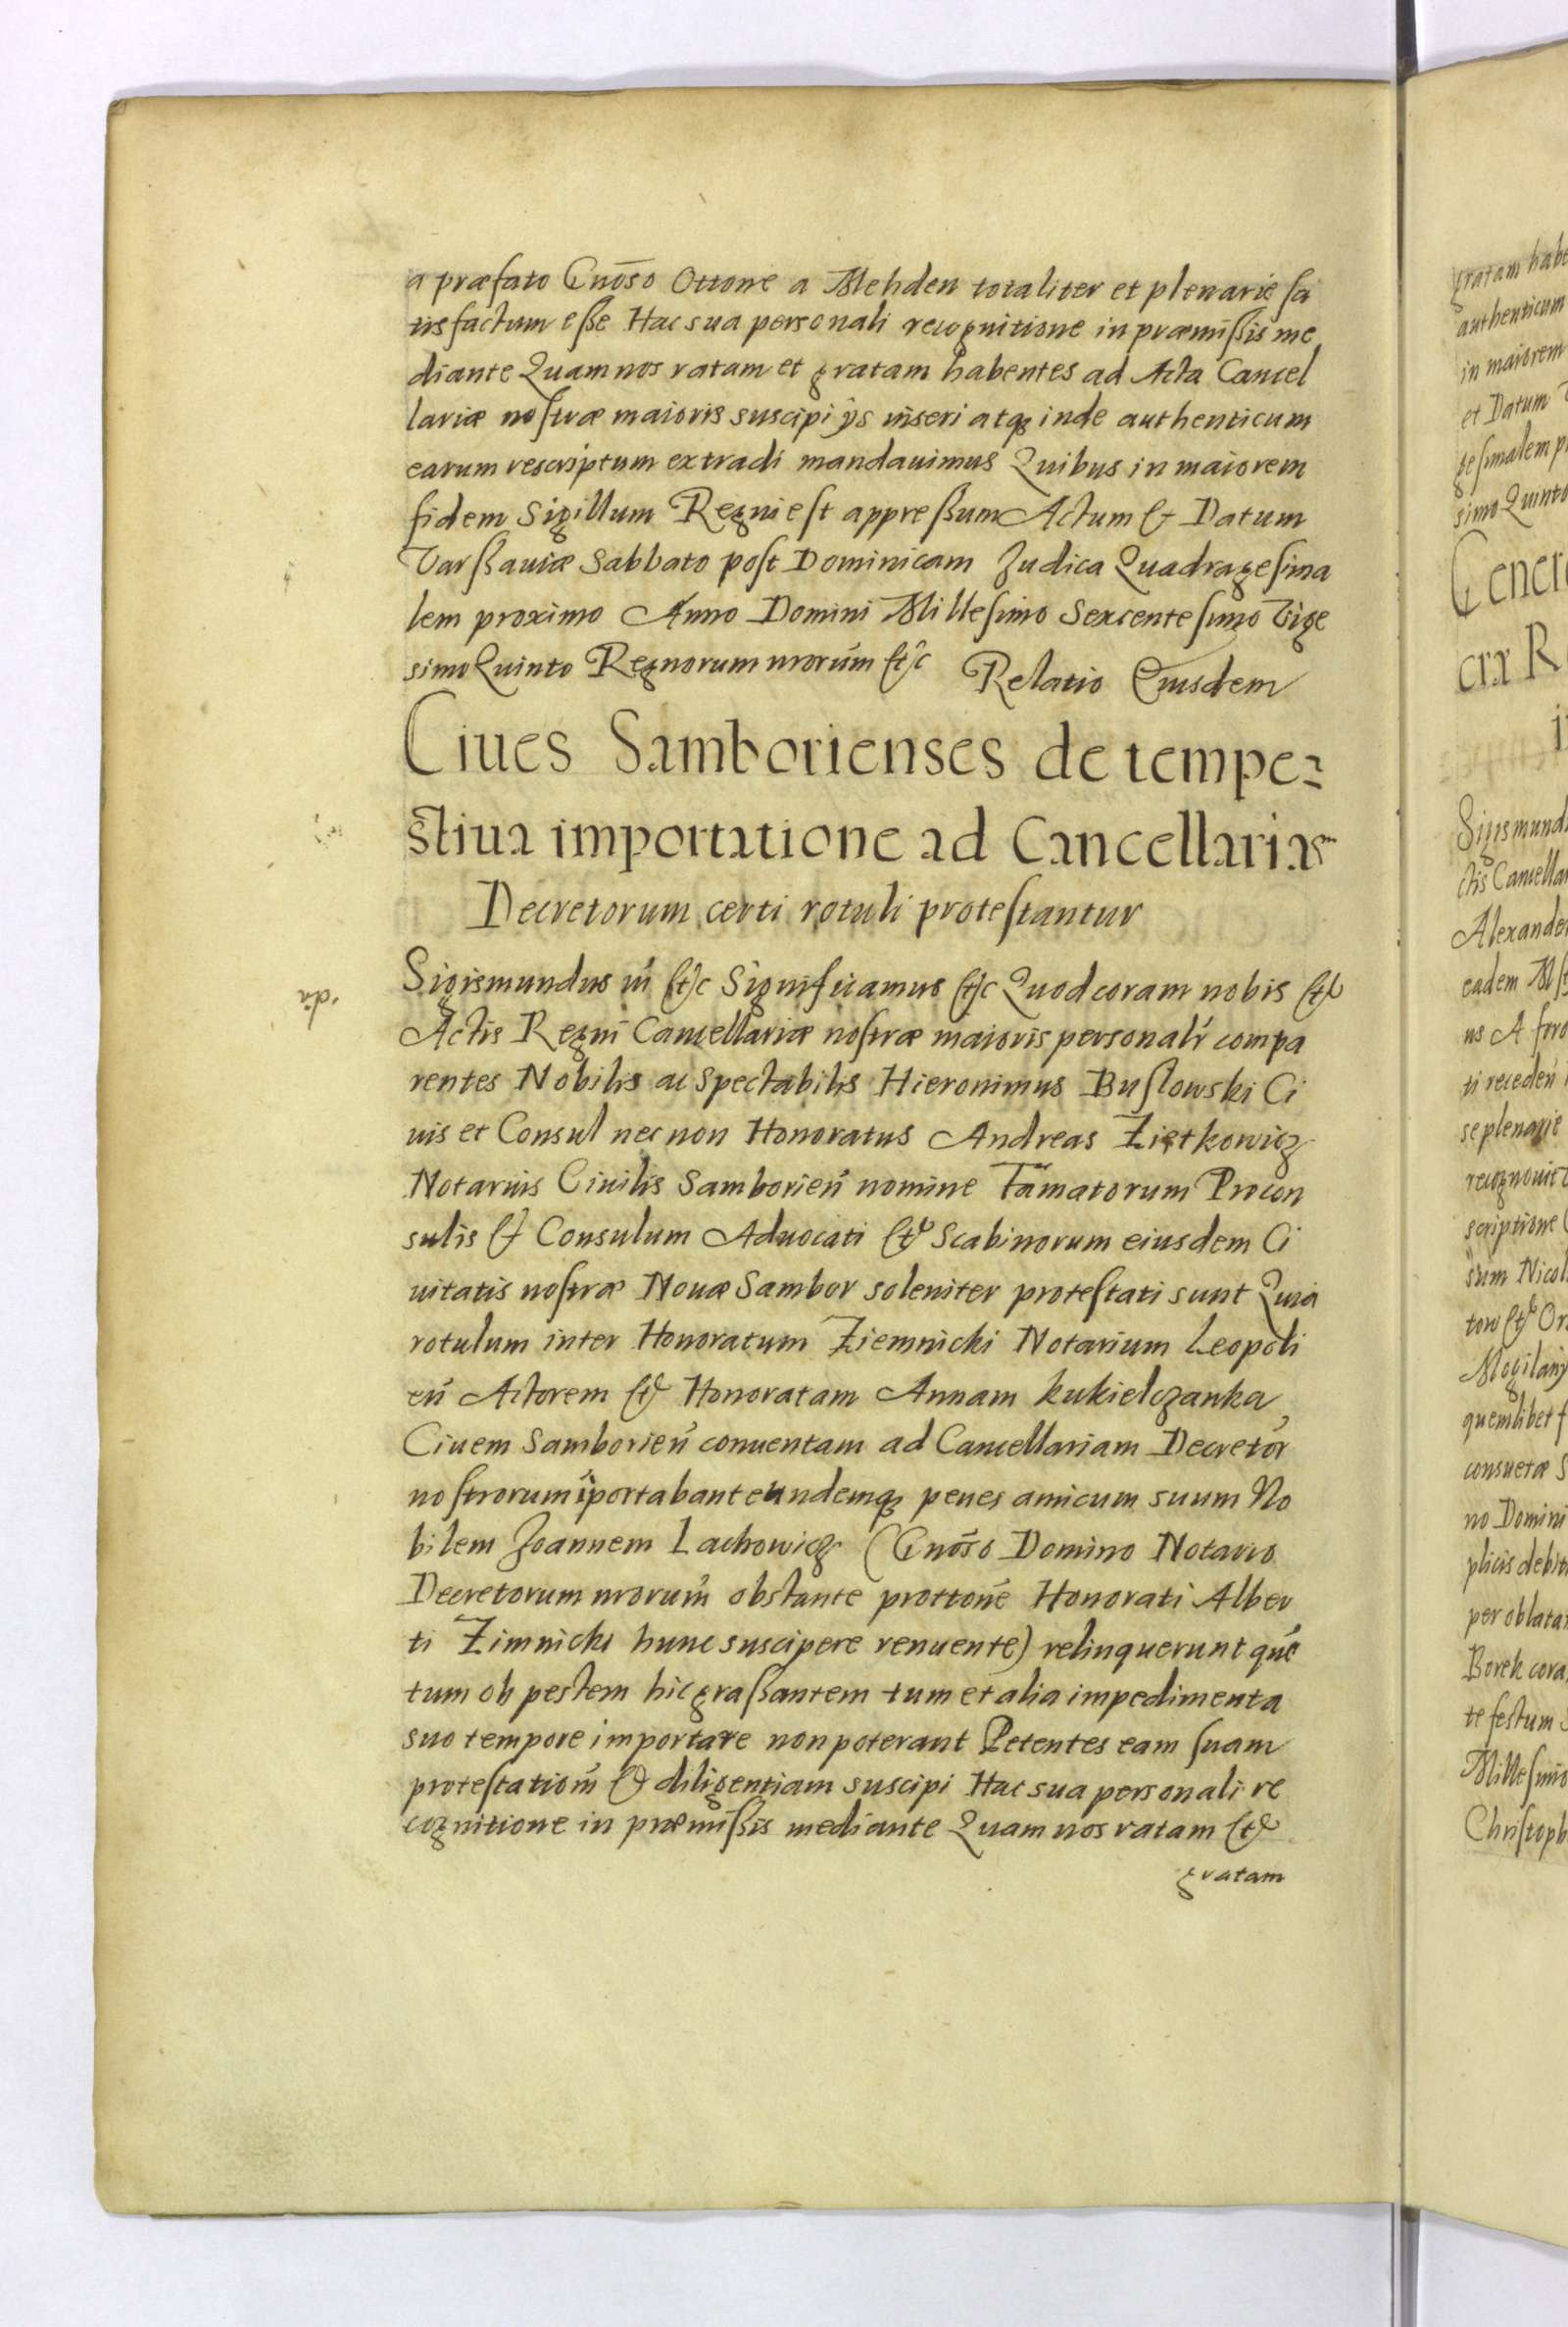 a præfato Gnōso Ottone a Mehden totaliter et plenarie sa
tisfactum esse Hac sua personali recognitione in præmissis me
diante Quam nos ratam et gratam habentes ad Acta Cancel
lariæ nostræ maioris suscipi ijs inseri atq inde authenticum
earum rescriptum extradi mandauimus Quibus in maiorem
fidem Sigillum Regni est appressum Actum & Datum
Varssauiæ Sabbato post Dominicam Judica Quadragesima
lem proximo Anno Domini Millesimo Sexcentesimo Vige
simo Quinto Regnorum nrorum etc Relatio Eiusdem
Ciues Samborienses de tempe=
stiua importatione ad Cancellarias
Decretorum certi rotuli protestantur
Sigismundus etc Significamus etc Quod coram nobis et
Actis Regni Cancellariæ nostræ maioris personalr compa
rentes Nobilis ac Spectabilis Hieronimus Buslowski Ci
uis et Consul nec non Honoratus Andreas Ziętkowicz
Notarius Ciuilis Samborien nomine Famatorum Procon
sulis & Consulum Aduocati et Scabinorum eiusdem Ci
uitatis nostræ Nouæ Sambor soleniter protestati sunt Quia
rotulum inter Honoratum Ziemnicki Notarium Leopoli
en Actorem et Honoratam Annam Kukielczanka
Ciuem Samborien conuentam ad Cancellariam Decretor
nostrorum iportabant eundemq penes amicum suum No
bilem Joannem Lachowicz (Gnōso Domino Notario
Decretorum nrorum obstante prottone Honorati Alber
ti Zimnicki hunc suscipere renuente) relinquerunt que
tum ob pestem hic grassantem tum et alia impedimenta
suo tempore importare non poterant Petentes eam suam
protestation et diligentiam suscipi Hac sua personali re
cognitione in præmissis mediante Quam nos ratam et
gratam